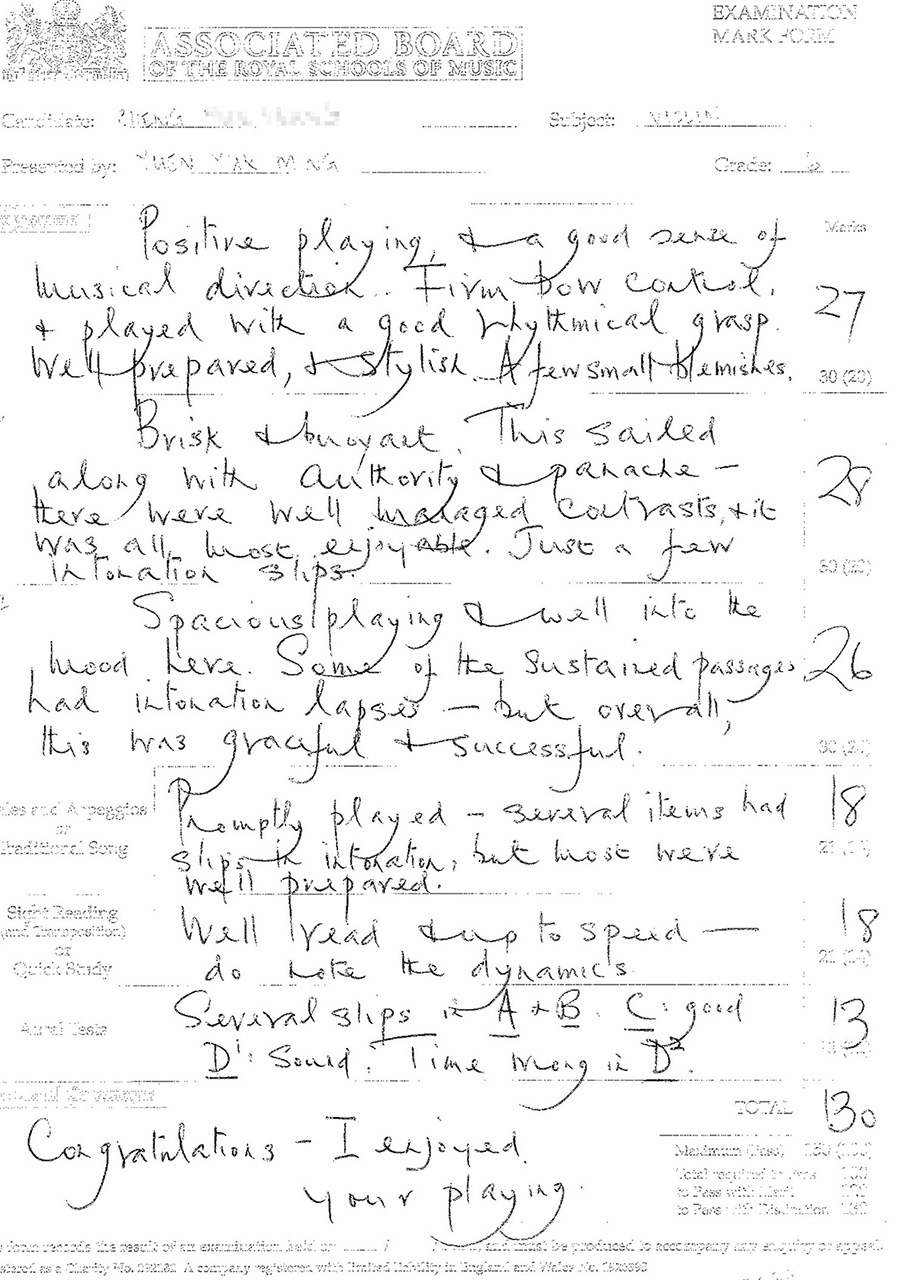 EXAMINATION
MARK FORM
ASSOCIATED BOARD
OF THE ROYAL SCHOOLS OF MUSIC
Candidate:
Subject: VIOLIN
Presented by: YUEN MING
Grade: 6
Marks
Positive playing, & a good sense of
musical direction. Firm bow control,
& played with a good rhythmical grasp.
Well prepared, & stylish. A few small blemishes.
27
30 (20)
Brisk & buoyant. This sailed
along with authority & panache –
there were well managed contrasts, & it
was all most enjoyable. Just a few
intonation slips.
28
30 (20)
Spacious playing & well into the
mood here. Some of the sustained passages
had intonation lapses – but overall,
this was graceful & successful.
26
30 (20)
Scales and Arpeggios
or
Traditional Song
Promptly played – several items had
slips in intonation, but most were
well prepared.
18
21 (14)
Sight Reading
(and Transposition)
or
Quick Study
Well read & up to speed —
do note the dynamics.
18
21 (14)
Aural Tests
Several slips in A & B. C: good
D¹: Sound. Time wrong in D².
13
Congratulations – I enjoyed
your playing.
TOTAL 130
Maximum (Pass) 150 (100)
Total required to Pass 100
to Pass with Merit 120
to Pass with Distinction 130
form records the result of an examination held and must be produced to accompany any enquiry or appeal.
registered as a Charity No. A company registered with limited liability in England and Wales No.